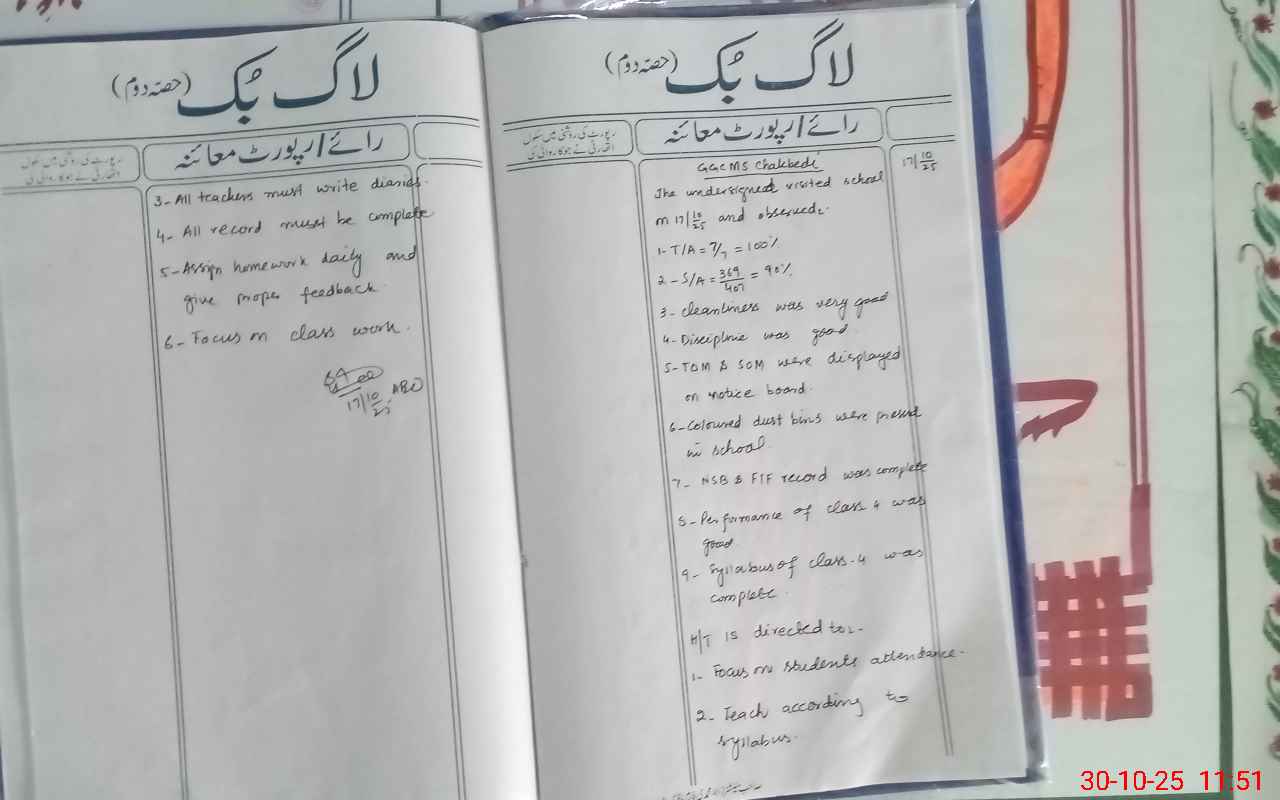 لاگ بُک (حصہ دوم)
رپورٹ کی روشنی میں سکول
اتھارٹی نے جو کارروائی کی
رائے/رپورٹ معائنہ
17/10/25
GGCMS Chakbedi
The undersigned visited school
on 17/10/25 and observed:-
1- T/A = 7/7 = 100%
2- S/A = 369/407 = 90%
3- cleanliness was very good
4- Discipline was good.
5- TOM & SOM were displayed
on notice board.
6- Coloured dust bins were present
in school.
7- NSB & FTF record was complete
8- Performance of class 4 was
good.
9- Syllabus of class-4 was
complete.
H/T is directed to:-
1- Focus on students attendance.
2- Teach according to
syllabus.
لاگ بُک (حصہ دوم)
رپورٹ کی روشنی میں سکول
اتھارٹی نے جو کارروائی کی
رائے/رپورٹ معائنہ
3- All teachers must write diaries.
4- All record must be complete
5- Assign homework daily and
give proper feedback.
6- Focus on class work.
17/10/25
30-10-25 11:51